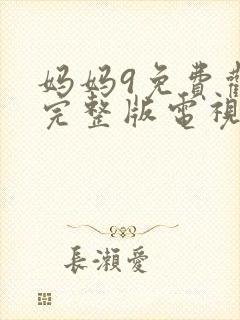 妈妈9免费
完整版電視
長瀬愛